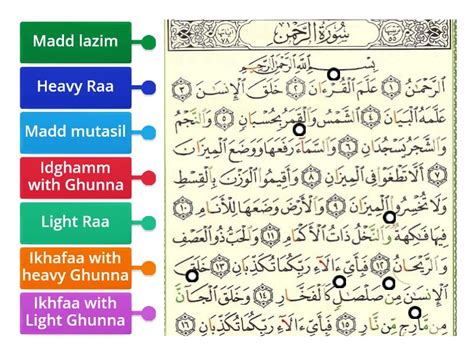 Madd lazim
Heavy Raa
Madd mutasil
Idghamm
with Ghunna
Light Raa
Ikhafaa with
heavy Ghunna
Ikhfaa with
Light Ghunna
سُورَةُ الرَّحْمَٰن
بِسْمِ اللَّهِ الرَّحْمَٰنِ الرَّحِيمِ
الرَّحْمَٰنُ ١ عَلَّمَ الْقُرْءَانَ ٢ خَلَقَ الْإِنسَٰنَ ٣
عَلَّمَهُ الْبَيَانَ ٤ الشَّمْسُ وَالْقَمَرُ بِحُسْبَانٍ ٥ وَالنَّجْمُ
وَالشَّجَرُ يَسْجُدَانِ ٦ وَالسَّمَآءَ رَفَعَهَا وَوَضَعَ الْمِيزَانَ
٧ أَلَّا تَطْغَوْا فِي الْمِيزَانِ ٨ وَأَقِيمُوا الْوَزْنَ بِالْقِسْطِ
وَلَا تُخْسِرُوا الْمِيزَانَ ٩ وَالْأَرْضَ وَضَعَهَا لِلْأَنَامِ ١٠
فِيهَا فَٰكِهَةٌ وَالنَّخْلُ ذَاتُ الْأَكْمَامِ ١١ وَالْحَبُّ ذُو الْعَصْفِ
وَالرَّيْحَانُ ١٢ فَبِأَيِّ ءَالَآءِ رَبِّكُمَا تُكَذِّبَانِ ١٣ خَلَقَ
الْإِنسَٰنَ مِن صَلْصَٰلٍ كَالْفَخَّارِ ١٤ وَخَلَقَ الْجَآنَّ
مِن مَّارِجٍ مِّن نَّارٍ ١٥ فَبِأَيِّ ءَالَآءِ رَبِّكُمَا تُكَذِّبَانِ ١٦